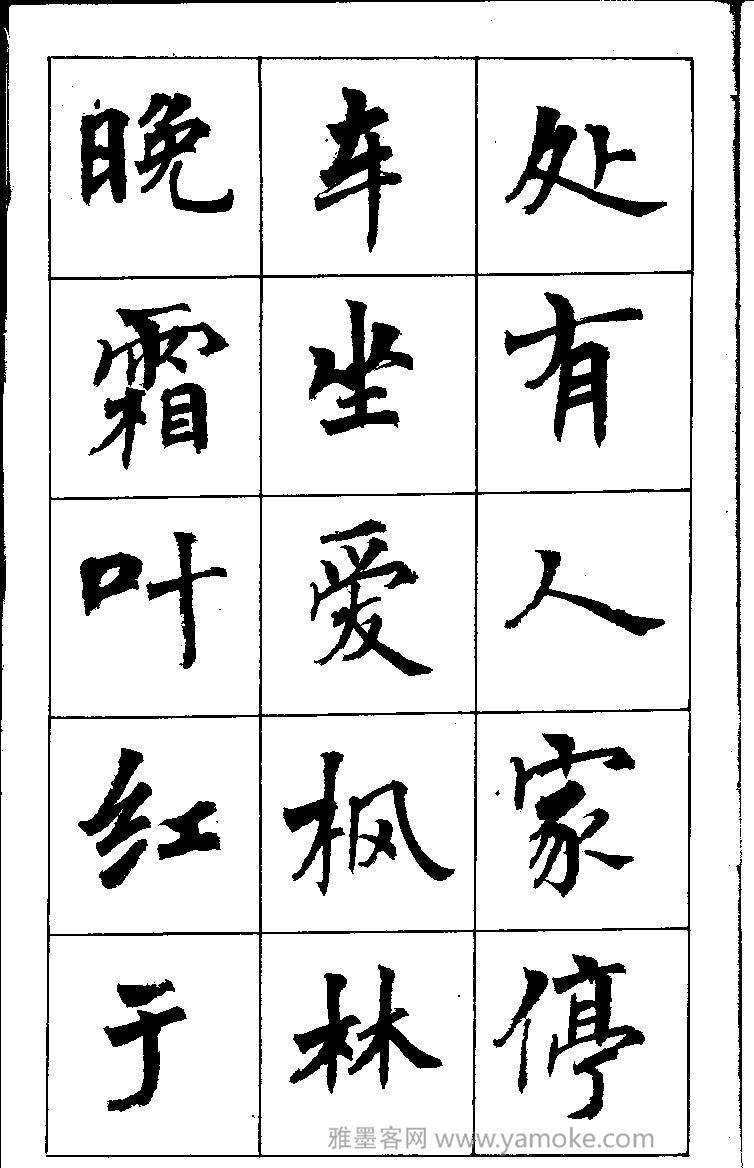 处有人家停
车坐爱枫林
晚霜叶红于
雅墨客网 www.yamoke.com